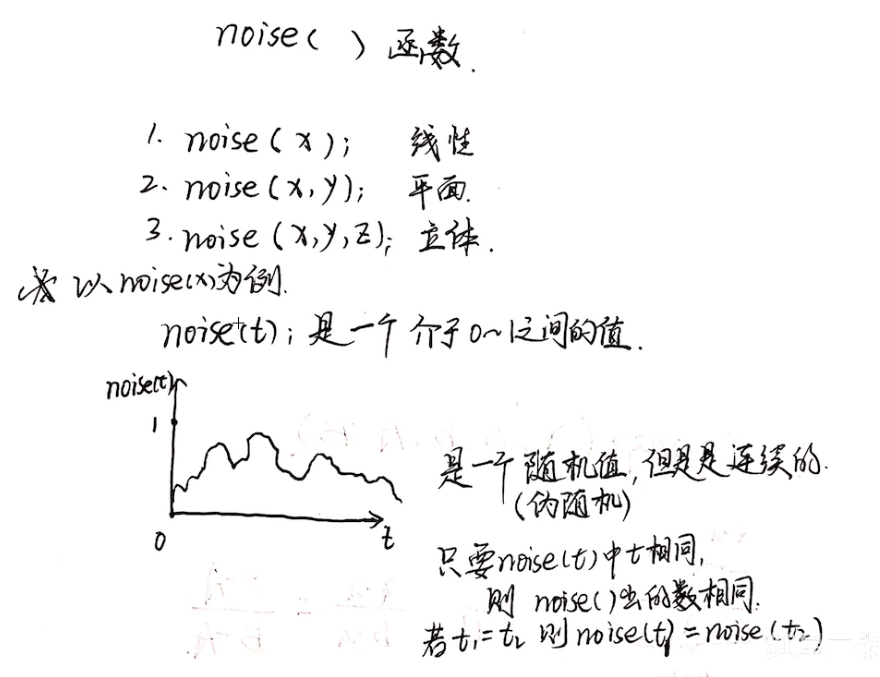 noise( ) 函数.
1. noise(x); 线性
2. noise(x,y); 平面.
3. noise(x,y,z); 立体.
以noise(x)为例.
noise(t); 是一个介于0~1之间的值.
noise(t)
1
0
t
是一个随机值,但是是连续的.
(伪随机)
只要noise(t)中t相同,
则 noise()出的数相同.
若t₁=t₂ 则noise(t₁)=noise(t₂)